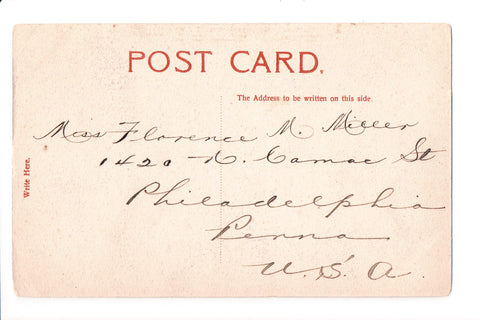 POST CARD.
The Address to be written on this side.
Write Here.
Miss Florence M. Miller
1420 N. Camac St
Philadelphia
Penna
U.S.A.